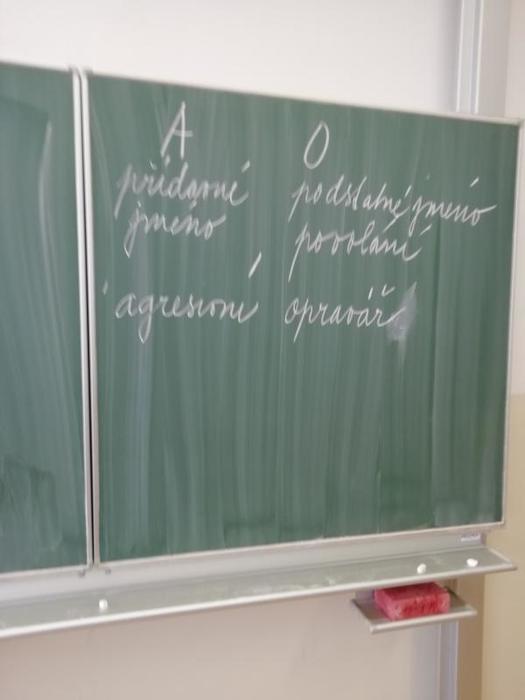 A
přídavné
jméno
agresivní
O
podstatné jméno
povolání
opravář